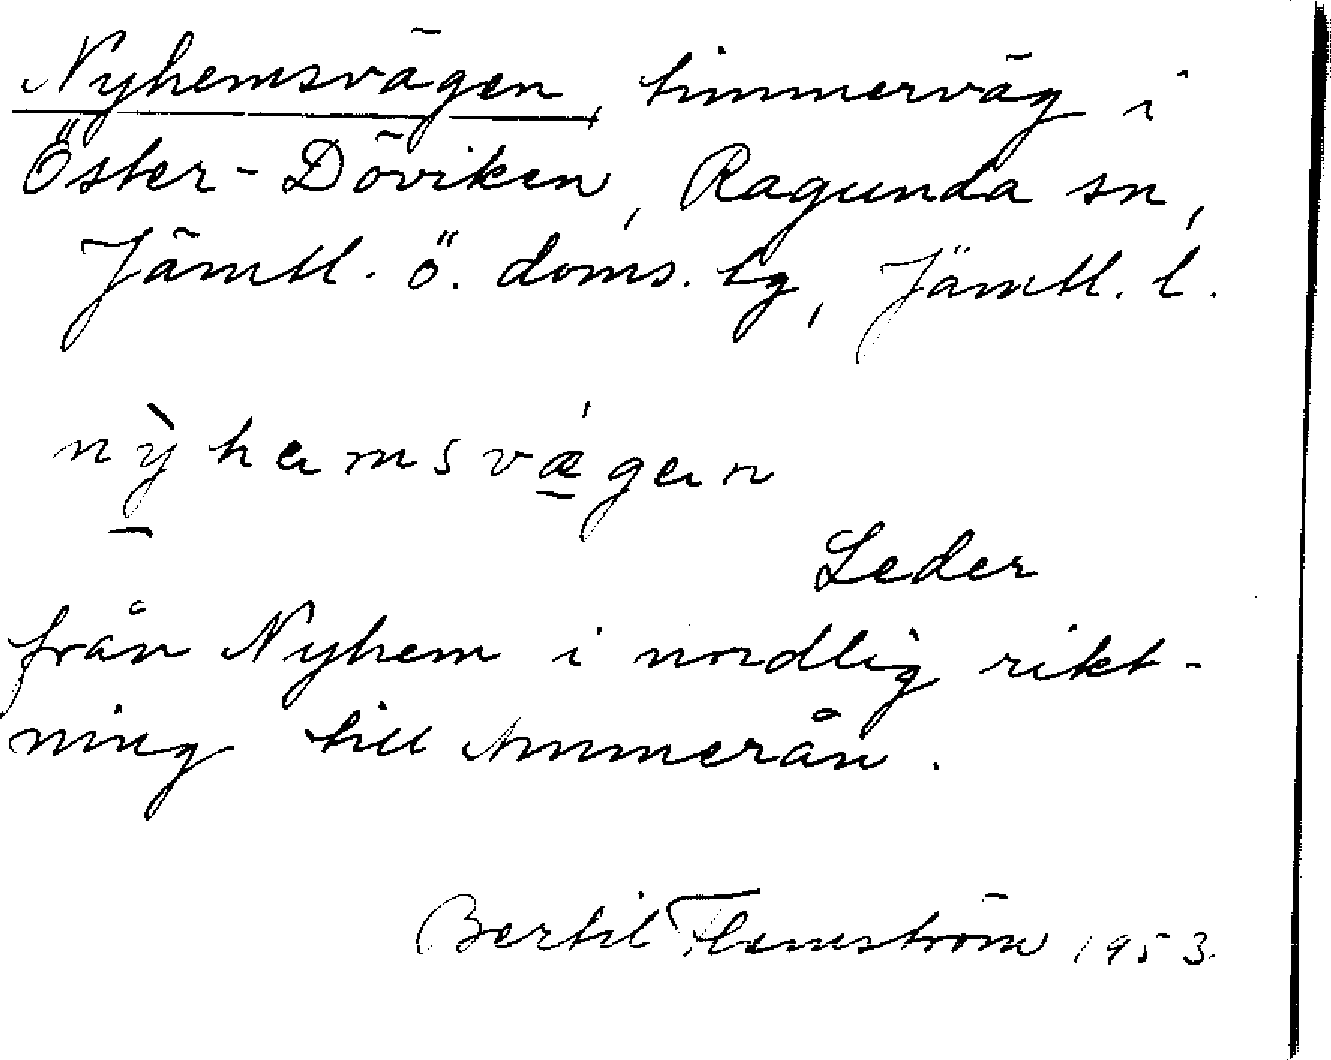 Nyhemsvägen, timmerväg i
Öster-Döviken, Ragunda sn,
Jämtl. ö. doms. lg, Jämtl. l.
nỳhemsvǽgen
Leder
från Nyhem i nordlig rikt-
ning till Ammerån.
Bertil Flemström 1953.